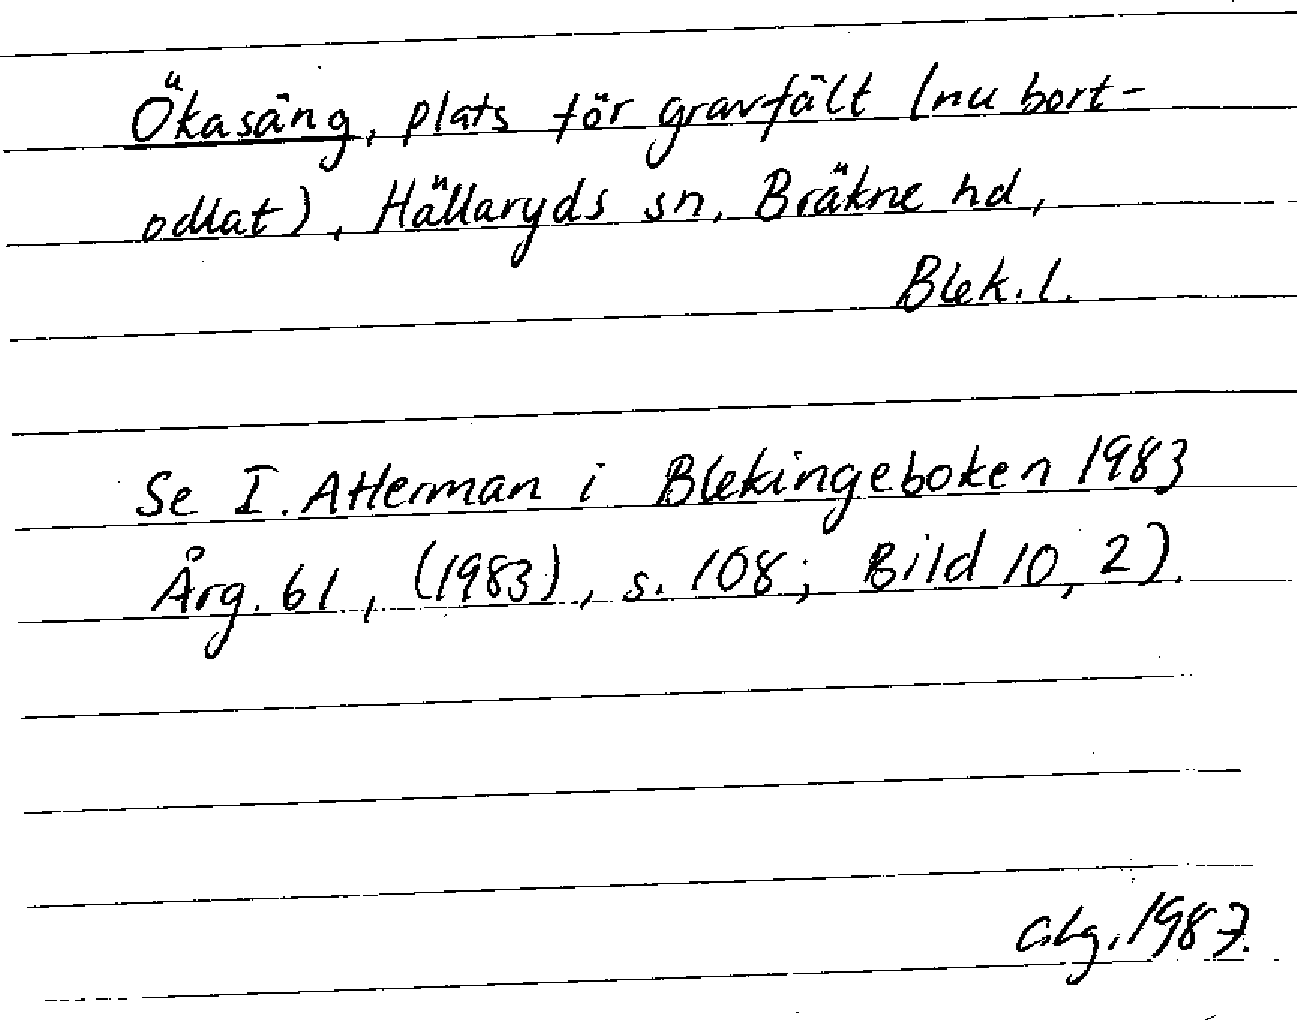 Ökasäng, plats för gravfält (nu bort-
odlat), Hällaryds sn, Bräkne hd,
Blek. l.
Se I. Atterman i Blekingeboken 1983
Årg. 61, (1983), s. 108; Bild 10, 2).
1987.